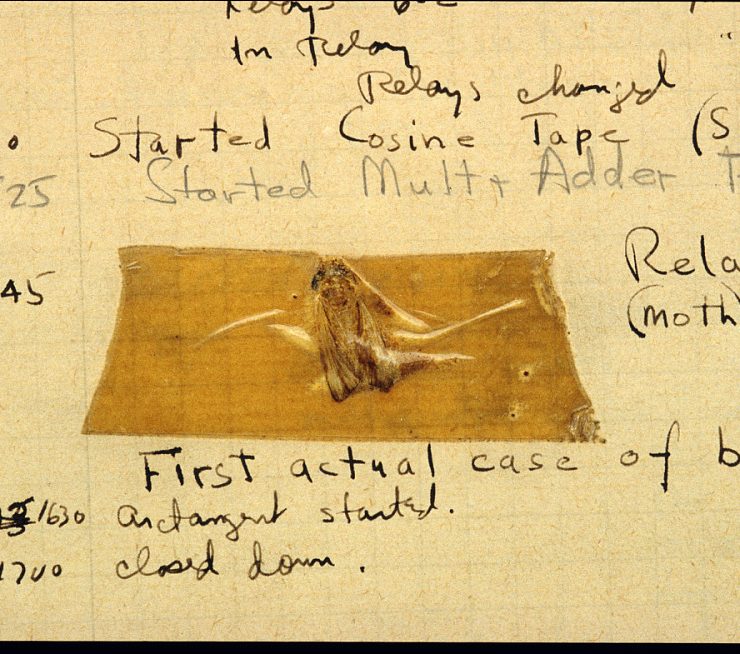 Relays
In Relay
Relays changed
Started Cosine Tape (S
25 Started Mult+ Adder T
45 Rela
(moth)
First actual case of b
1630 arctangent started.
1700 closed down.